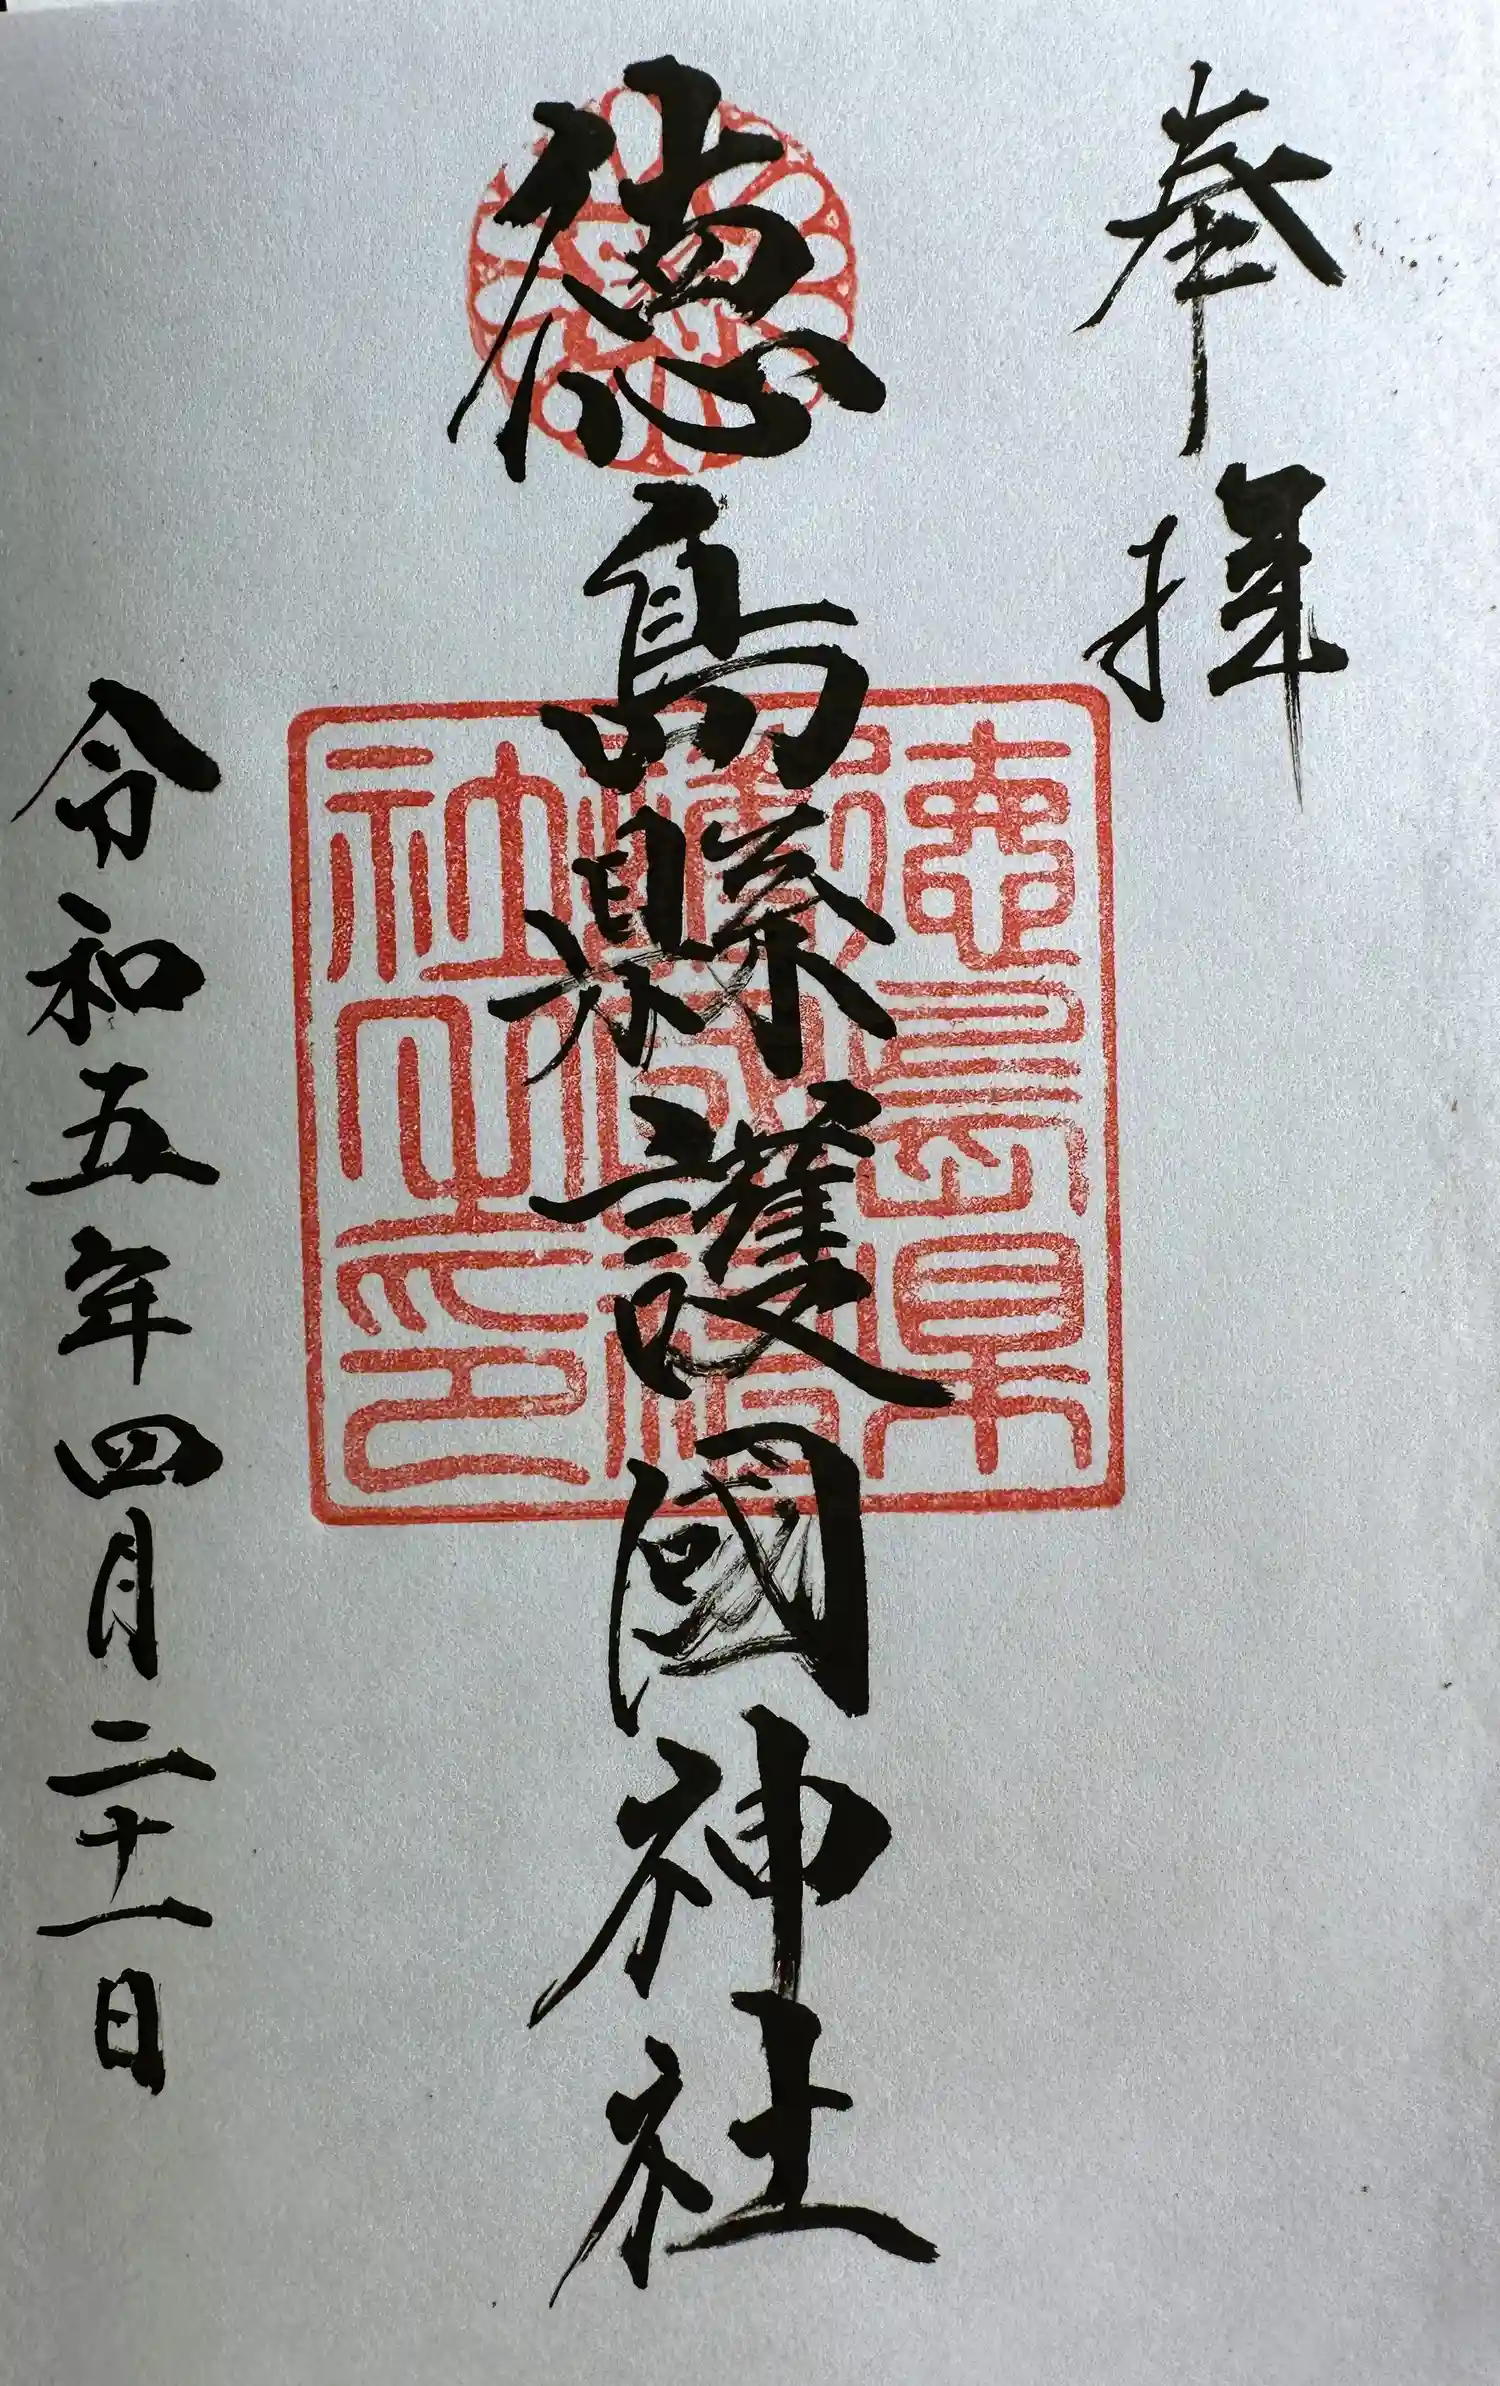 奉拝
德島縣護國神社
徳島県護國神社之印
令和五年四月二十一日